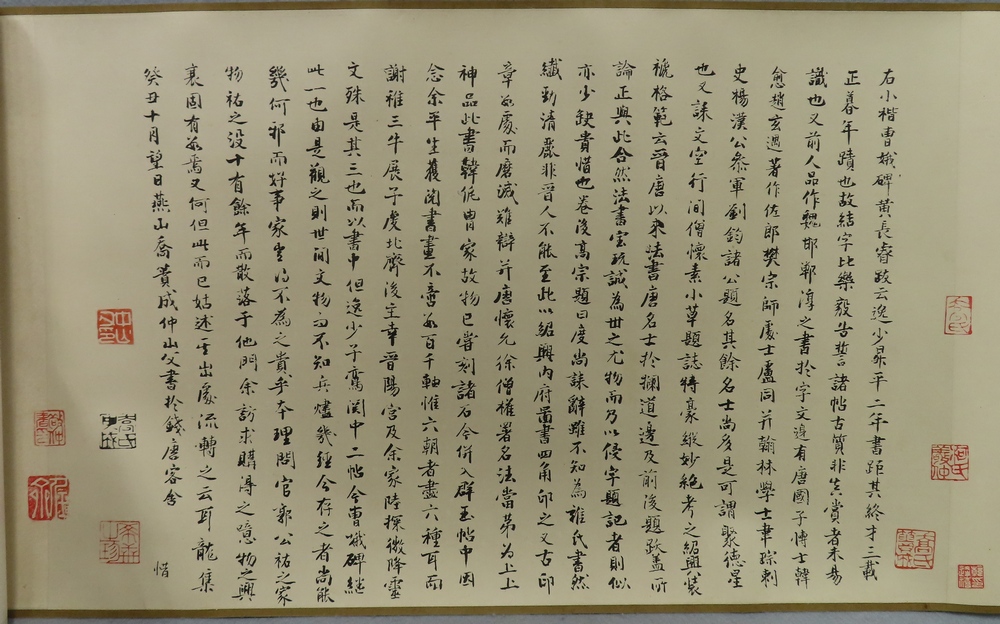 右小楷曹娥碑黄長睿跋云逸少昇平二年書距其終才三載
正暮年蹟也故結字比樂毅告誓諸帖古質非真賞者未易
識也又前人品作魏邯鄲淳之書於字文邊有唐國子博士韓
愈趙玄遇著作佐郎樊宗師處士盧同并翰林學士韋琮刺
史楊漢公參軍劉鈞諸公題名其餘名士尚多是可謂聚德星
也又誄文空行間僧懷素小草題誌特豪縱妙絶考之紹興装
褫格範云晉唐以來法書唐名士於攔道邊及前後題跋盖所
論正與此合然法書寶玩誠為世之尤物而乃以侵字題記者則似
亦少缺貴惜也卷後高宗題曰度尚誄辭雖不知為誰氏書然
纎勁清麗非晉人不能至此以紹興内府圖書四角印之又古印
章數處而磨滅難辯并唐懷充徐僧權署名法當第為上上
神品此書韓侂胄家故物已嘗刻諸石今併入群玉帖中因
念余平生獲閲書畫不啻數百千軸惟六朝者盡六種耳而
謝稚三牛展子虔北齊後主幸晉陽宮及余家陸探微降靈
文殊是其三也而以書中但逸少子鸞閲中二帖今曹娥碑継
此一也由是觀之則世間文物即不知兵燼幾經今存之者尚能
幾何邪而好事家豈得不為之貴乎本理問官郭公祐之家
物祐之没十有餘年而散落于他門余訪求購得之噫物之興
衰固有數焉又何但此而已姑述其出處流轉之云耳龍集
癸丑十月望日燕山喬簣成仲山父書於錢唐客舍